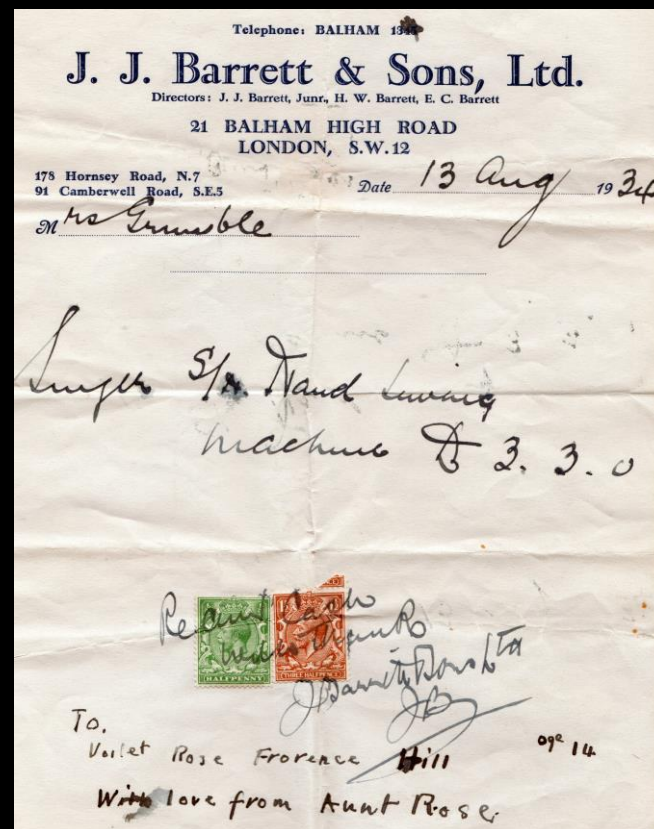 Telephone: BALHAM 1345
J. J. Barrett & Sons, Ltd.
Directors: J. J. Barrett, Junr., H. W. Barrett, E. C. Barrett
21 BALHAM HIGH ROAD
LONDON, S.W.12
178 Hornsey Road, N.7
91 Camberwell Road, S.E.5
Date 13 Aug 1934
Mrs Grumble
Singer S/H Hand Sewing
Machine £ 3. 3. 0
Recd Cash
with thanks
J Barrett & Sons Ltd
JB
HALFPENNY
THREE HALFPENCE
To.
Voilet Rose Frorence Hill age 14
With love from Aunt Rose.